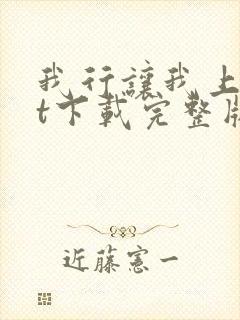 我行讓我上
t下載完整版
近藤憲一